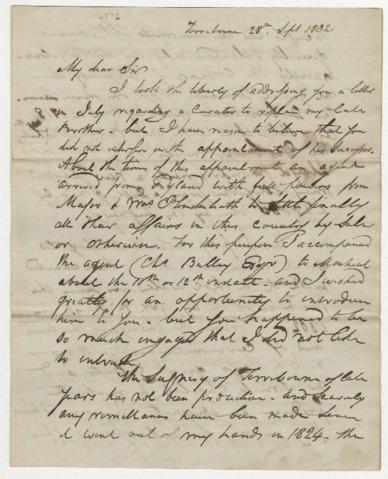 No 2
Terrebonne 28th Sept 1832
My dear Sir
I took the liberty of addressing you a letter
in July regarding a Curator to replace my late
Brother - but I have reason to believe that you
did not interfere in the appointment of his successor.
About the time of this appointment an agent
arrived from England with full powers from
Major & Mrs to settle finally
all their affairs in this Country by Sale
or otherwise. For this purpose I accompanied
the agent (Chs Esqre) to Montreal
about the 10th or 12th instant - and I wished
greatly for an opportunity to introduce
him to you - but you happened to be
so much engaged that I did not like
to intrude
The Seigneury of Terrebonne of late
years has not been productive - and scarcely
any remittances have been made since
it went out of my hands in 1824 - the